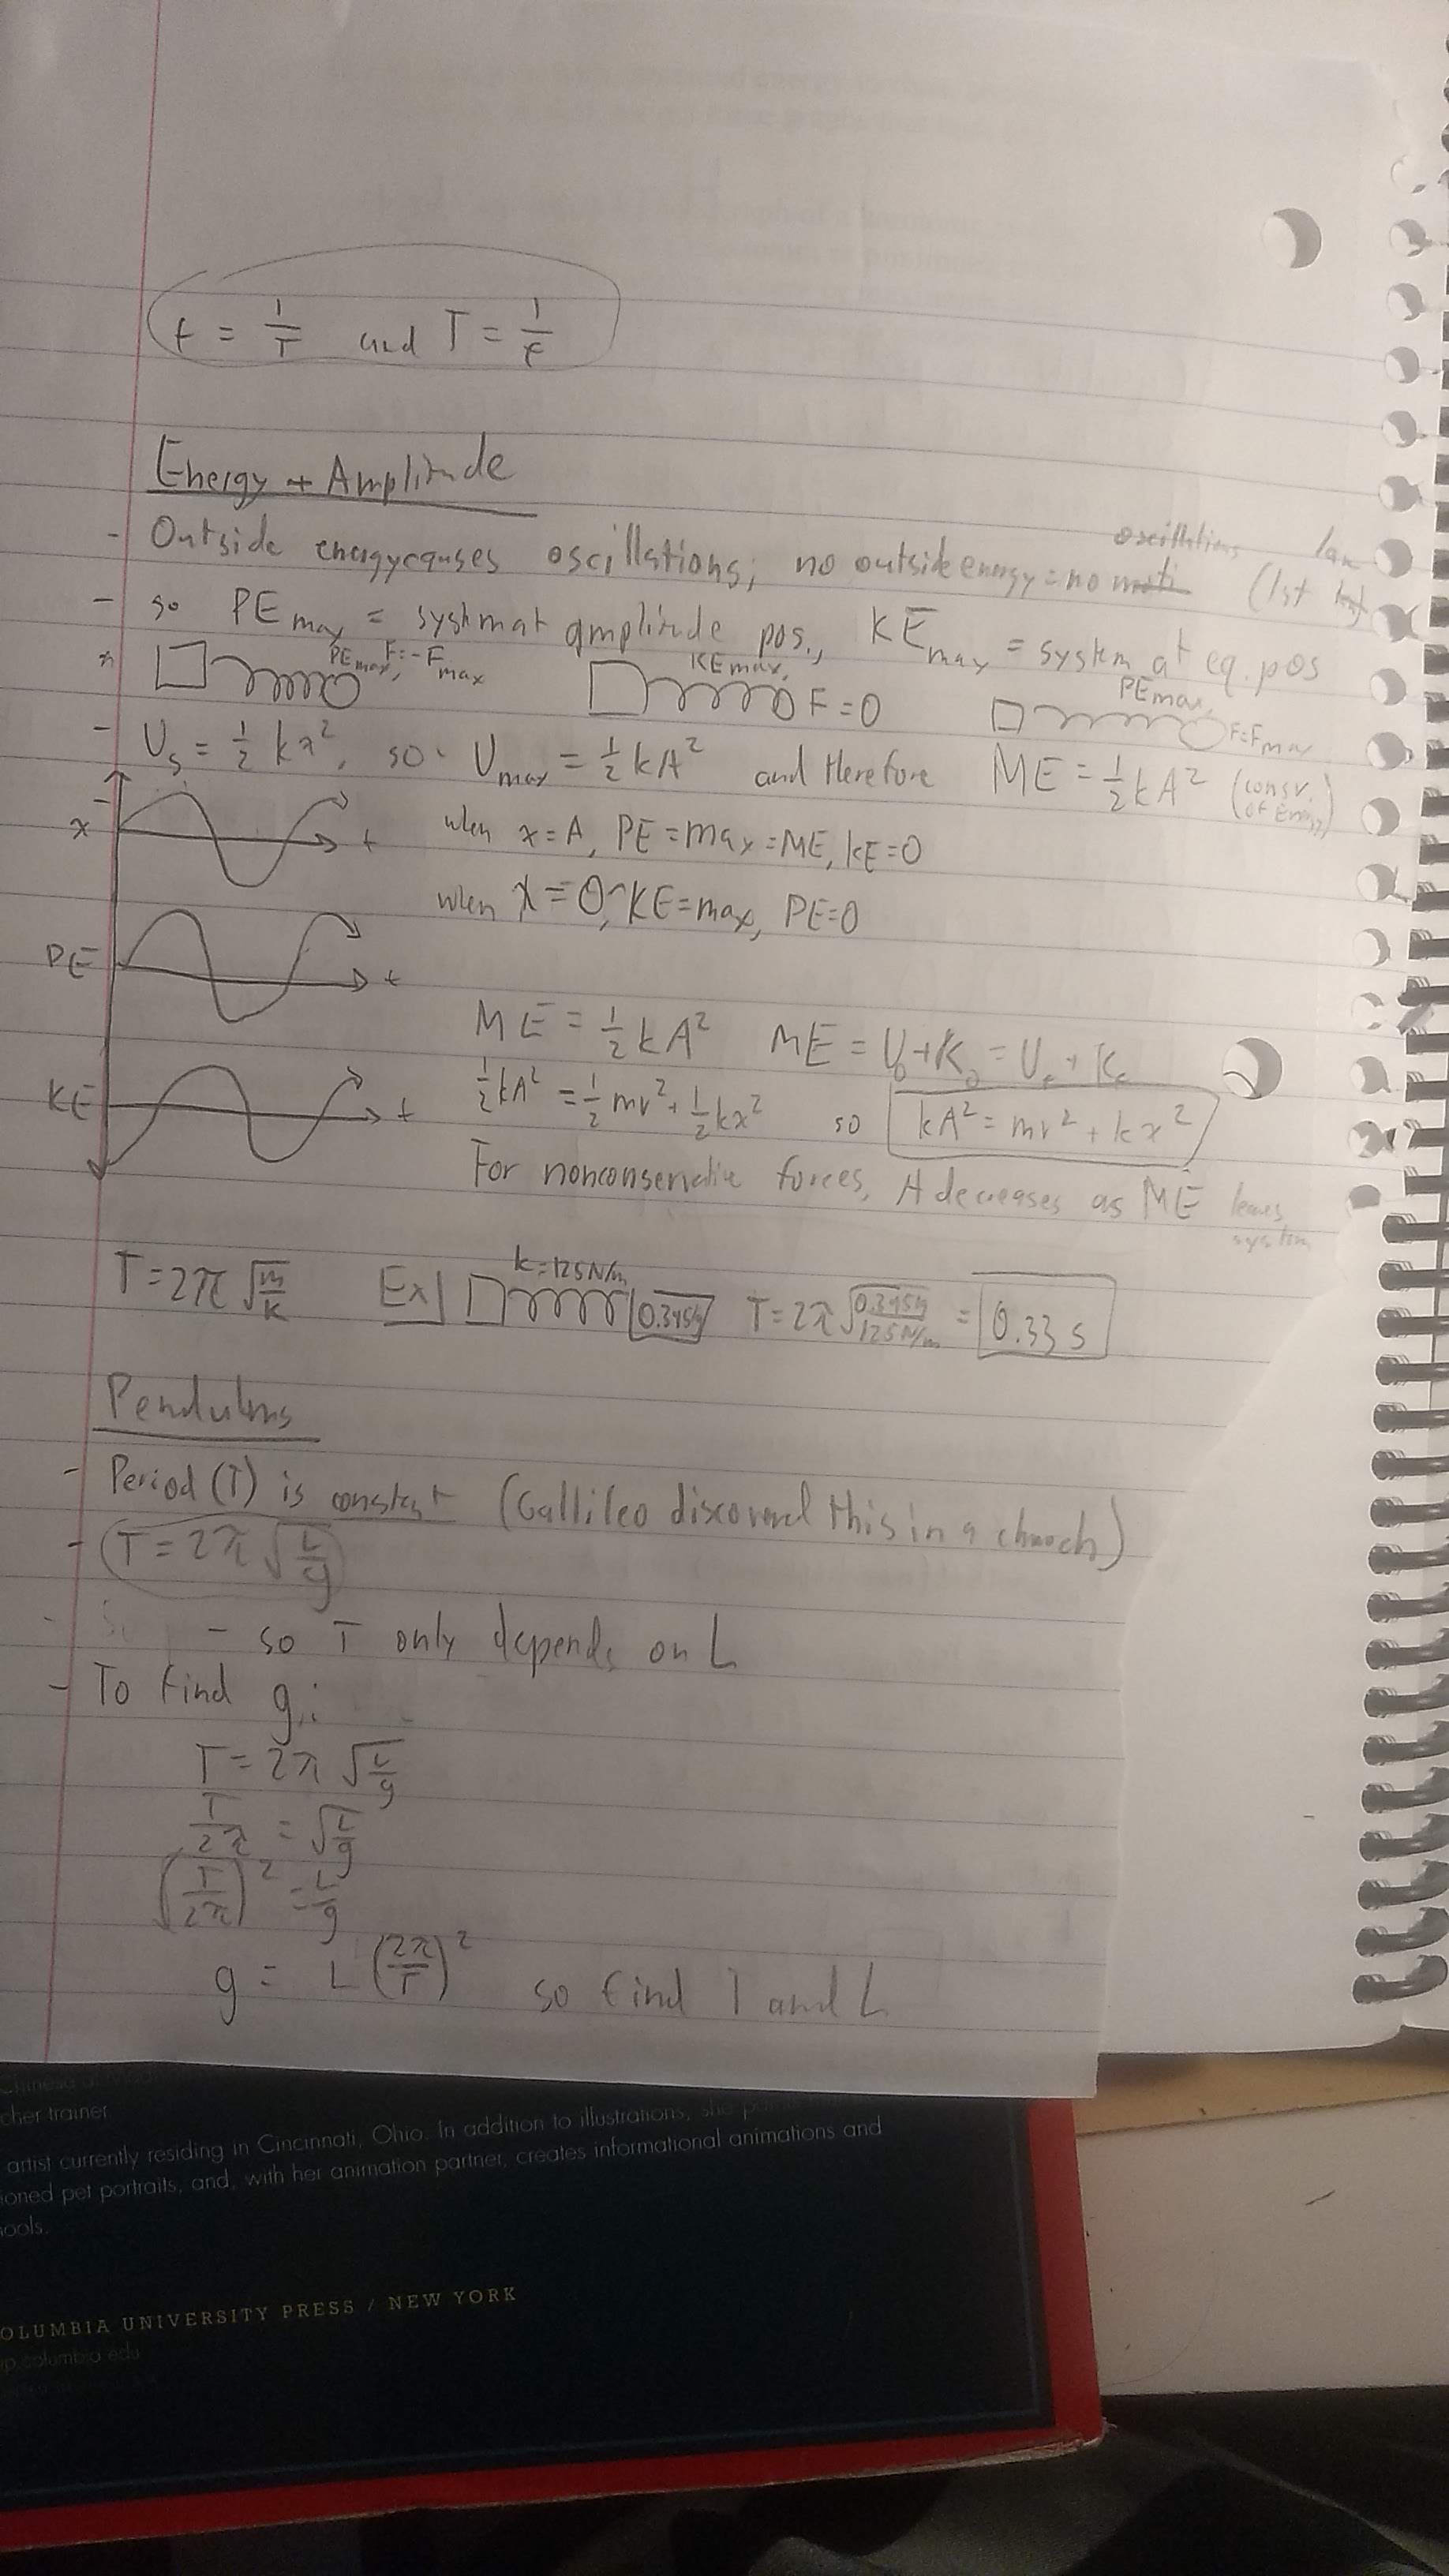 f = 1/T and T = 1/f
Energy + Amplitude
- Outside energy causes oscillations; no outside energy = no moti oscillations (1st law)
- so PEmax = system at amplitude pos., KEmax = system at eq. pos
PEmax, F=-Fmax KEmax, F=0 PEmax, F=Fmax
- Us = 1/2 kx², so Umax = 1/2 kA² and therefore ME = 1/2 kA² (consv. of Energy)
x t
when x=A, PE=max=ME, KE=0
when x=0, KE=max, PE=0
PE t
ME = 1/2 kA² ME = U0+K0 = Uf+Kf
KE t
1/2 kA² = 1/2 mv² + 1/2 kx² so kA² = mv² + kx²
For nonconservative forces, A decreases as ME leaves system
T=2π√(m/k) Ex] k=125N/m 0.345kg T=2π√(0.345kg/125N/m) = 0.33 s
Pendulms
- Period (T) is constant (Gallileo discovered this in a church)
- T=2π√(L/g)
- so T only depends on L
- To find g:
T = 2π√(L/g)
T/2π = √(L/g)
(T/2π)² = L/g
g = L(2π/T)² so find T and L
cher trainer
artist currently residing in Cincinnati, Ohio. In addition to illustrations, she
ioned pet portraits, and, with her animation partner, creates informational animations and
ools.
OLUMBIA UNIVERSITY PRESS / NEW YORK
p.columbia.edu